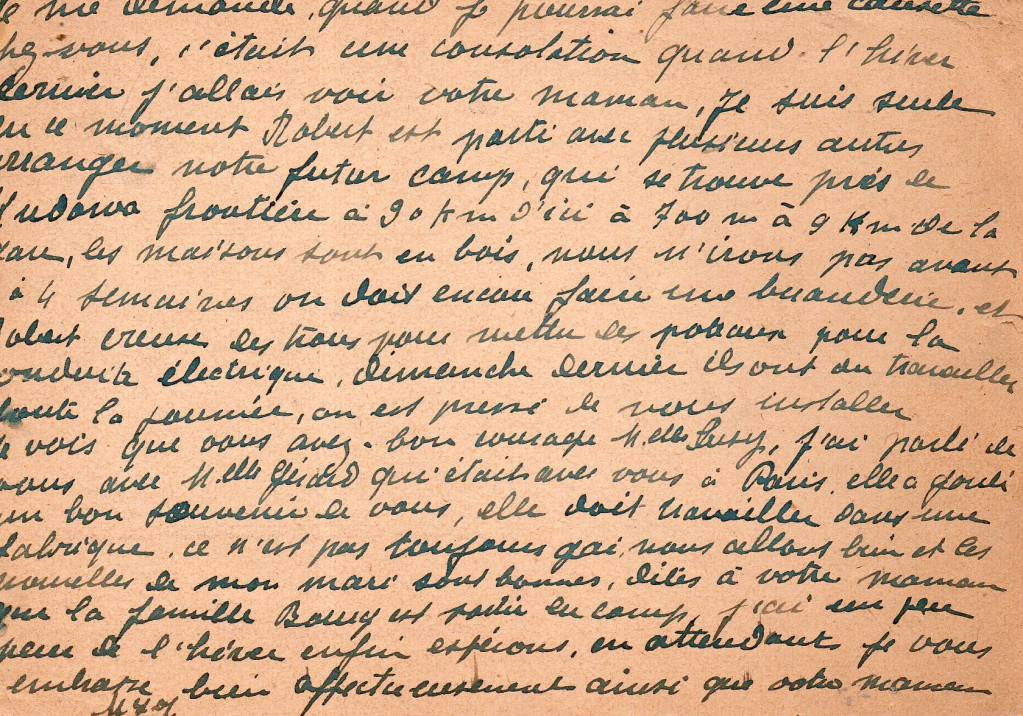 me demande, quand je pourrai faire une causette
chez-vous, c'était une consolation quand l'hiver
dernier j'allais voir votre maman, je suis seule
en ce moment Robert est parti avec plusieurs autres
arranger notre futur camp, qui se trouve près de
Kudowa frontière à 90 km d'ici à 700 m à 9 km de la
gare, les maisons sont en bois, nous n'irons pas avant
à 4 semaines on doit encore faire une buanderie, et
Robert creuse des trous pour mettre des poteaux pour la
conduite électrique, dimanche dernier ils ont du travailler
toute la journée, on est pressé de nous installer
je vois que vous avez bon courage Melle Susy, j'ai parlé de
vous avec Melle qu'était avec vous à Paris, elle a
un bon souvenir de vous, elle doit travailler dans une
fabrique, ce n'est pas toujours gai, nous allons bien et les
nouvelles de mon mari sont bonnes, dites à votre maman
que la famille est sortie du camp, j'ai un peu
peur de l'hiver enfin espérons, en attendant je vous
embrasse bien affectueusement ainsi que votre maman